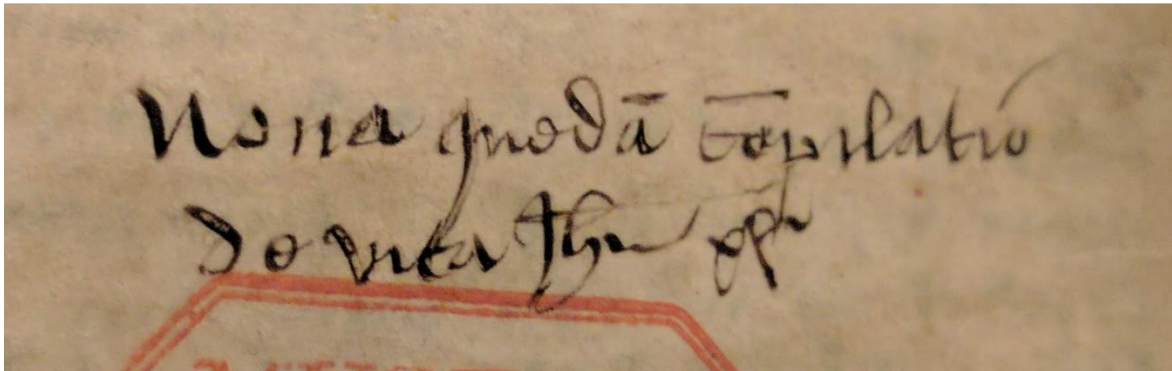 Noua quedā cōpilatio
de vita Ihu xpi